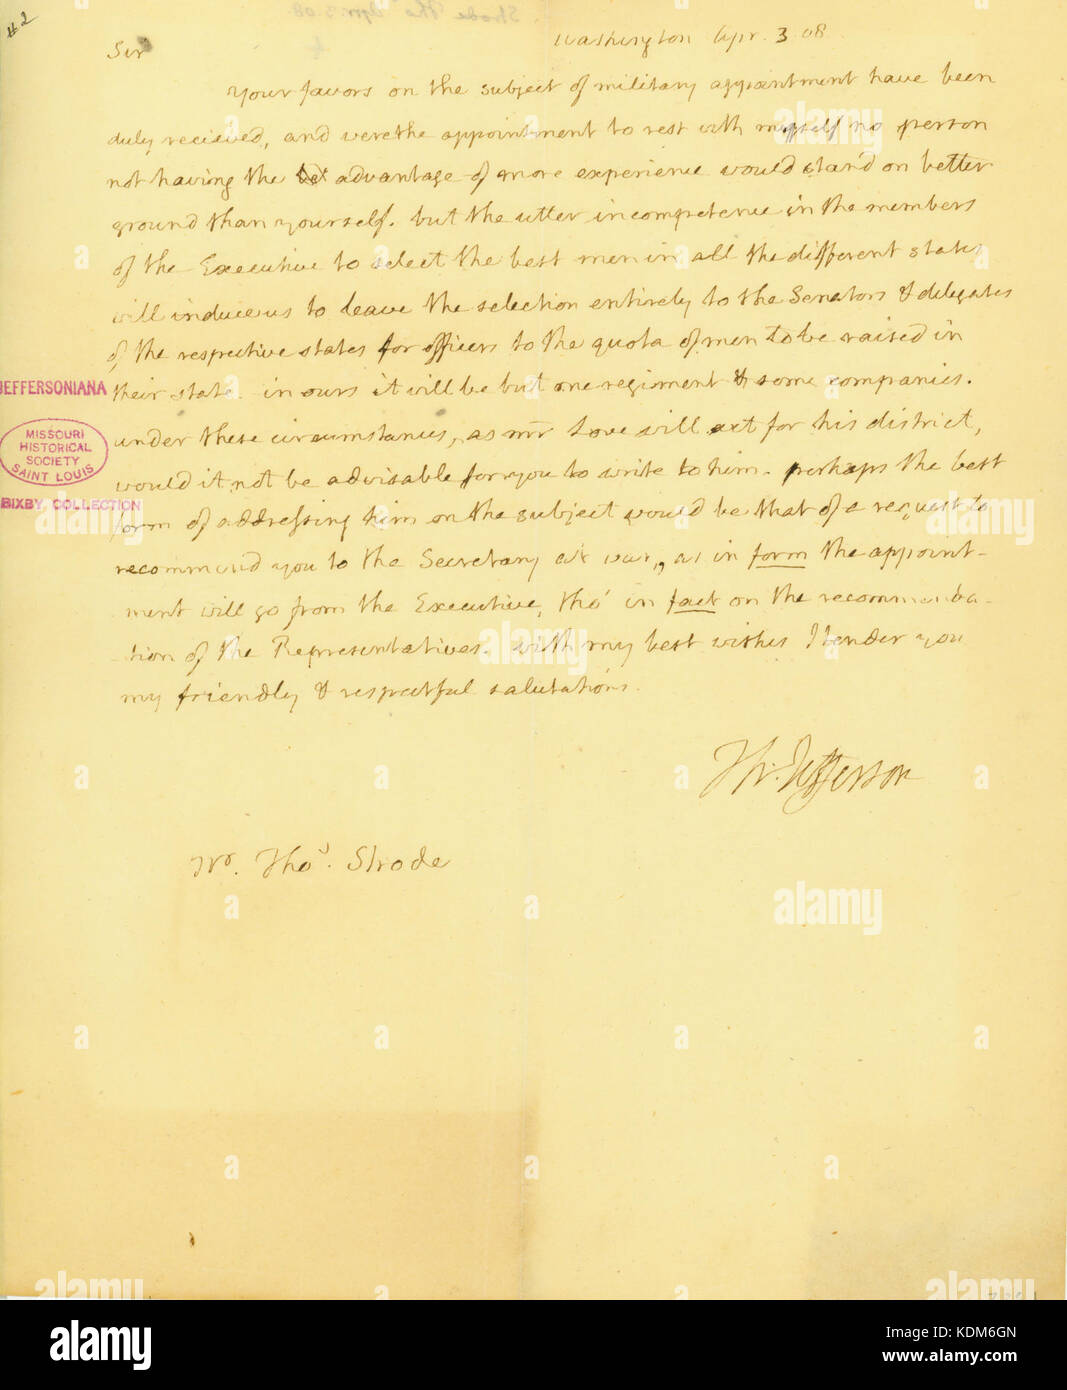 #2
Washington Apr. 3 08
Sir
Your favors on the subject of military appointment have been
duly recieved, and were the appointment to rest with myself no person
not having the advantage of more experience would stand on better
ground than yourself. but the utter incompetence in the members
of the Executive to select the best men in all the different states
will induce us to leave the selection entirely to the Senators & delegates
of the respective states for officers to the quota of men to be raised in
their state. in ours it will be but one regiment & some companies.
under these circumstances, as mr Love will act for his district,
would it not be advisable for you to write to him. perhaps the best
form of addressing him on the subject would be that of a request to
recommend you to the Secretary at war, as in form the appoint-
ment will go from the Executive, tho' in fact on the recommenda-
-tion of the Representatives. with my best wishes I tender you
my friendly & respectful salutations.
Th: Jefferson
Mr. Thos. Strode
JEFFERSONIANA
MISSOURI
HISTORICAL
SOCIETY
SAINT LOUIS
BIXBY COLLECTION
alamy
Image ID: KDM6GN
www.alamy.com